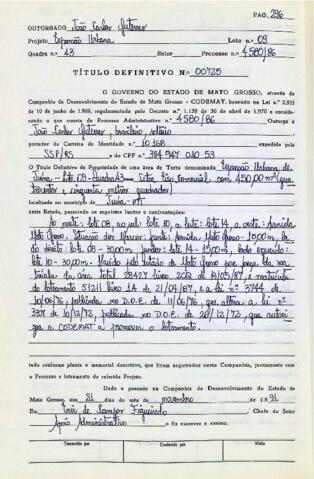 PAG. 296
OUTORGADO João Carlos
Projeto Expansão Urbana Lote n.o 09
Quadra n.o 43 Setor Processo n.o 4580/86
TÍTULO DEFINITIVO N.o 00725
O GOVERNO DO ESTADO DE MATO GROSSO, através da
Companhia de Desenvolvimento do Estado de Mato Grosso - CODEMAT, baseado na Lei n.o 2.933
de 10 de junho de 1969, regulamentada pelo Decreto n.o 1.138 de 30 de abril de 1970 e considerando
o que consta do Processo Administrativo n.o 4580/86 Outorga a
João Carlos brasileiro solteiro
portador da Carteira de Identidade n.o 10 168 expedida pela
SSP/RS e do CPF n.o 384 947 010 53
O Título Definitivo de Propriedade de uma área de Terra denominada Expansão Urbana de
Juína - lote 09 - Quadra 43 Comercial com 450,00 m² (quatrocentos
e cinquenta metros quadrados)
Juína - MT
neste Estado, possuindo os seguintes limites e confrontações:
ao norte: lote 08, ao sul: lote 10, a leste: lote 14, a oeste:
Mato Grosso Mato Grosso - 15,00 m, lado
direito: lote 08 - 30,00 m, fundos: lote 14 - 15,00 m, lado esquerdo:
lote 10 - 30,00 m.
da área total 28427 livro 202 de
do loteamento 51211 livro 1A de 21/04/87, e a lei nº 3744 de
10/06/76, publicada no D.O.E. de 11/06/76, que altera a lei nº
3307 de 10/12/72, publicada no D.O.E. de 28/12/72, que autoriza
a CODEMAT a promover o loteamento.
tudo conforme planta e memorial descritivo, que ficam arquivados nesta Companhia, juntamente com
o Processo e loteamento do referido Projeto.
Dado e passado na Companhia de Desenvolvimento do Estado de
Mato Grosso, aos 21 dias do mês de novembro de 1991
Eu, de Campos Figueiredo Chefe do Setor
Apoio Administrativo o Fiz escrever e assino.
Transcrito por Conferido por Visto